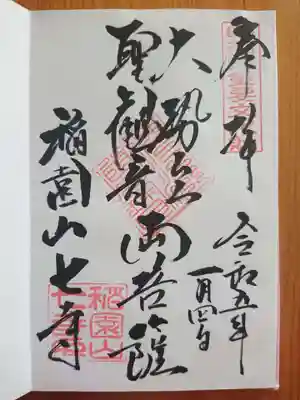 奉拝
令和五年
一月四日
大勢至
聖観音両菩薩
稲園山七寺
稲園山
七寺